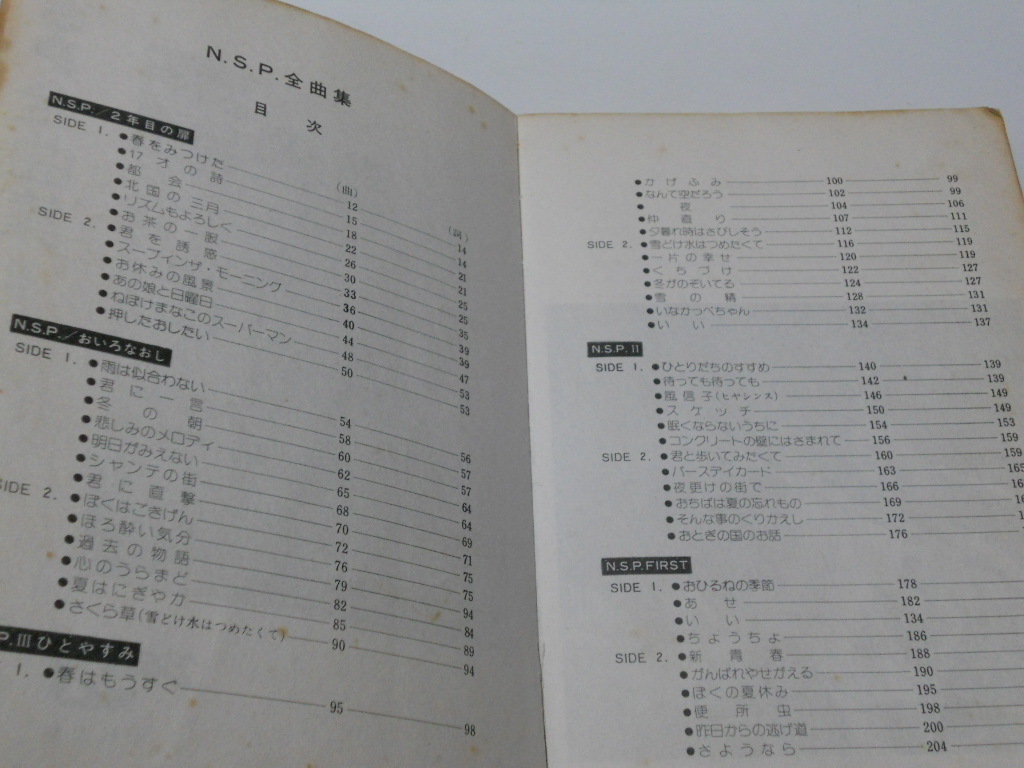 N.S.P.全曲集
目次
N.S.P./2年目の扉
(曲) (詞)
SIDE 1. ●春をみつけた 12 14
●17才の詩 15 14
●都会 18 21
●北国の三月 22 21
●リズムもよろしく 26 25
●お茶の一服 30 25
SIDE 2. ●君を誘惑 33 35
●スープインザ・モーニング 36 39
●お休みの風景 40 39
●あの娘と日曜日 44 47
●ねぼけまなこのスーパーマン 48 53
●押したおしたい 50 53
N.S.P./おいろなおし
SIDE 1. ●雨は似合わない 54 56
●君に一言 58 57
●冬の朝 60 57
●悲しみのメロディ 62 64
●明日がみえない 65 64
●シャンテの街 68 69
●君に直撃 70 71
SIDE 2. ●ぼくはごきげん 72 75
●ほろ酔い気分 76 75
●過去の物語 79 94
●心のうらまど 82 84
●夏はにぎやか 85 89
●さくら草(雪どけ水はつめたくて) 90 94
P.IIIひとやすみ
1. ●春はもうすぐ 95 98
●かげふみ 100 99
●なんて空だろう 102 99
●夜 104 106
●仲直り 107 111
●夕暮れ時はさびしそう 112 115
SIDE 2. ●雪どけ水はつめたくて 116 119
●一片の幸せ 120 119
●くちづけ 122 127
●冬がのぞいてる 124 127
●雪の精 128 131
●いなかっぺちゃん 132 131
●いい 134 137
N.S.P.11
SIDE 1. ●ひとりだちのすすめ 140 139
●待っても待っても 142 139
●風信子(ヒヤシンス) 146 149
●スケッチ 150 149
●眠くならないうちに 154 153
●コンクリートの壁にはさまれて 156 159
SIDE 2. ●君と歩いてみたくて 160 159
●バースデイカード 163 165
●夜更けの街で 166
●おちばは夏の忘れもの 169
●そんな事のくりかえし 172
●おとぎの国のお話 176
N.S.P.FIRST
SIDE 1. ●おひるねの季節 178
●あせ 182
●いい 134
●ちょうちょ 186
SIDE 2. ●新青春 188
●がんばれやせがえる 190
●ぼくの夏休み 195
●便所虫 198
●昨日からの逃げ道 200
●さようなら 204